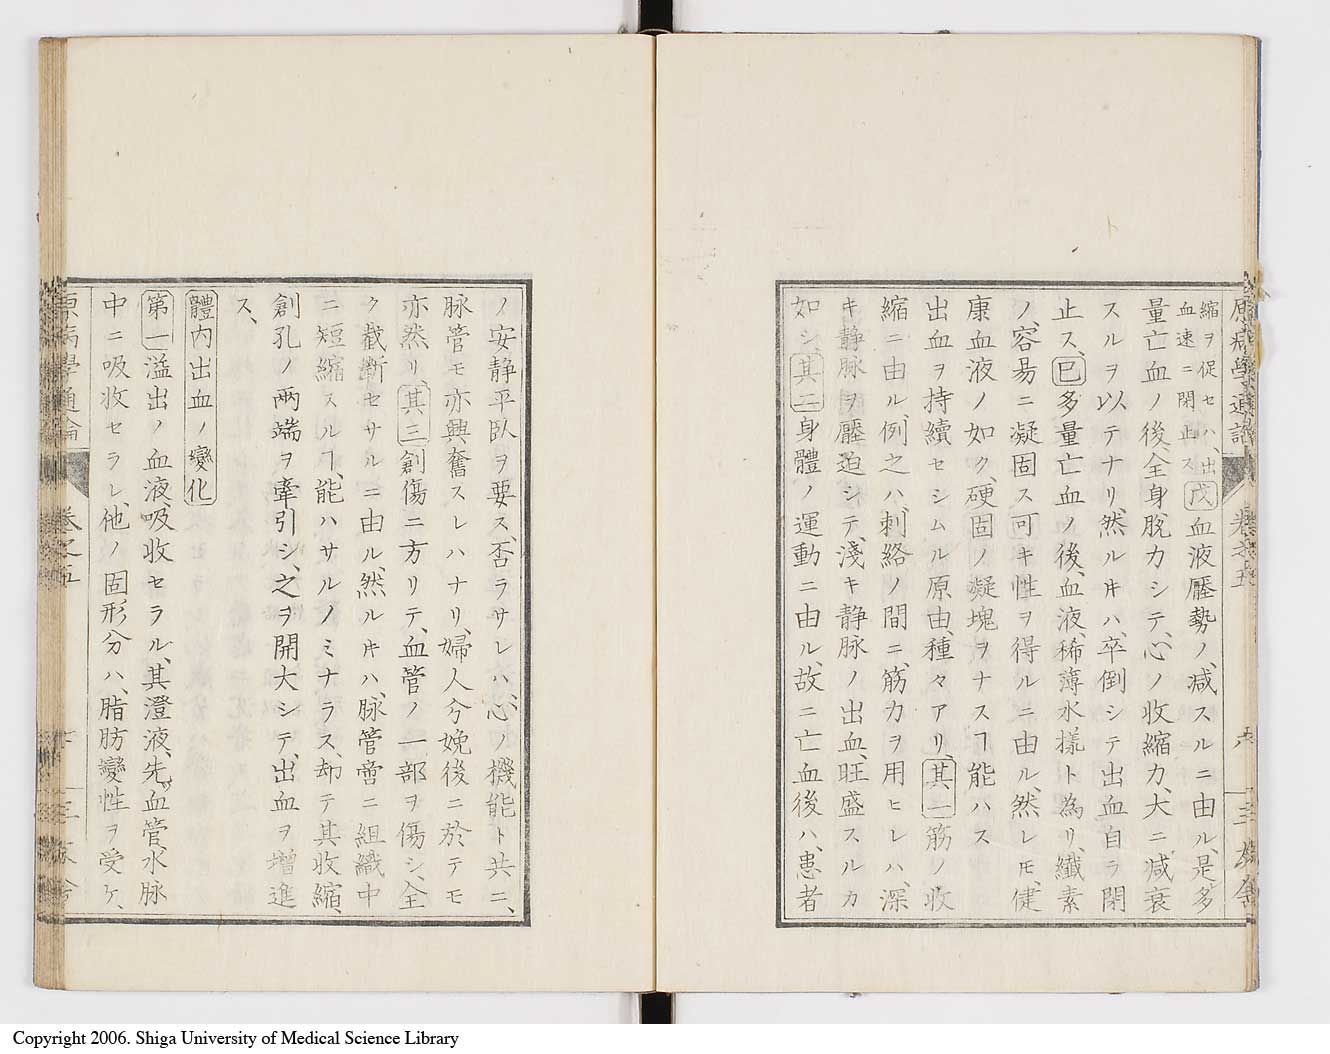 縮ヲ促セハ、出
血速ニ閉止ス
戊血液壓勢ノ、減スルニ由ル、是多
量亡血ノ後、全身脱力シテ、心ノ收縮力、大ニ減衰
スルヲ以テナリ、然ルㇳキハ、卒倒シテ出血自ラ閉
止ス、巳多量亡血ノ後、血液、稀薄水樣ト為リ、纖素
ノ、容易ニ凝固ス可キ性ヲ得ルニ由ル、然レㇳモ、健
康血液ノ如ク、硬固ノ凝塊ヲナスヿ能ハス
出血ヲ持續セシムル原由、種々アリ其一筋ノ收
縮ニ由ル、例之ハ、刺絡ノ間ニ、筋力ヲ用ヒレハ、深
キ静脉ヲ壓迫シテ、淺キ静脉ノ出血、旺盛スルカ
如シ其二身體ノ運動ニ由ル、故ニ亡血後ハ、患者
原病學通論
卷之五
ノ安静平臥ヲ要ス、否ラサレハ、心ノ機能ト共ニ、
脉管モ亦興奮スレハナリ、婦人分娩後ニ於テモ
亦然リ、其三創傷ニ方リテ、血管ノ一部ヲ傷シ、全
ク截斷セサルニ由ル、然ルㇳキハ、脉管啻ニ組織中
ニ短縮スルヿ、能ハサルノミナラス、却テ其收縮、
創孔ノ兩端ヲ牽引シ、之ヲ開大シテ、出血ヲ增進
ス、
體内出血ノ變化
第一溢出ノ血液、吸收セラル、其澄液、先ッ血管、水脉
中ニ吸收セラレ、他ノ固形分ハ、脂肪變性ヲ受ケ、
原病學通論
卷之五